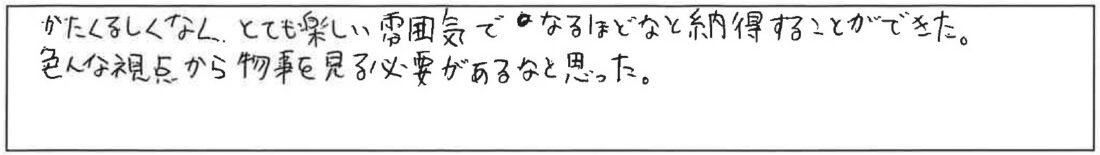 かたくるしくなく、とても楽しい雰囲気でなるほどなと納得することができた。
色んな視点から物事を見る必要があるなと思った。